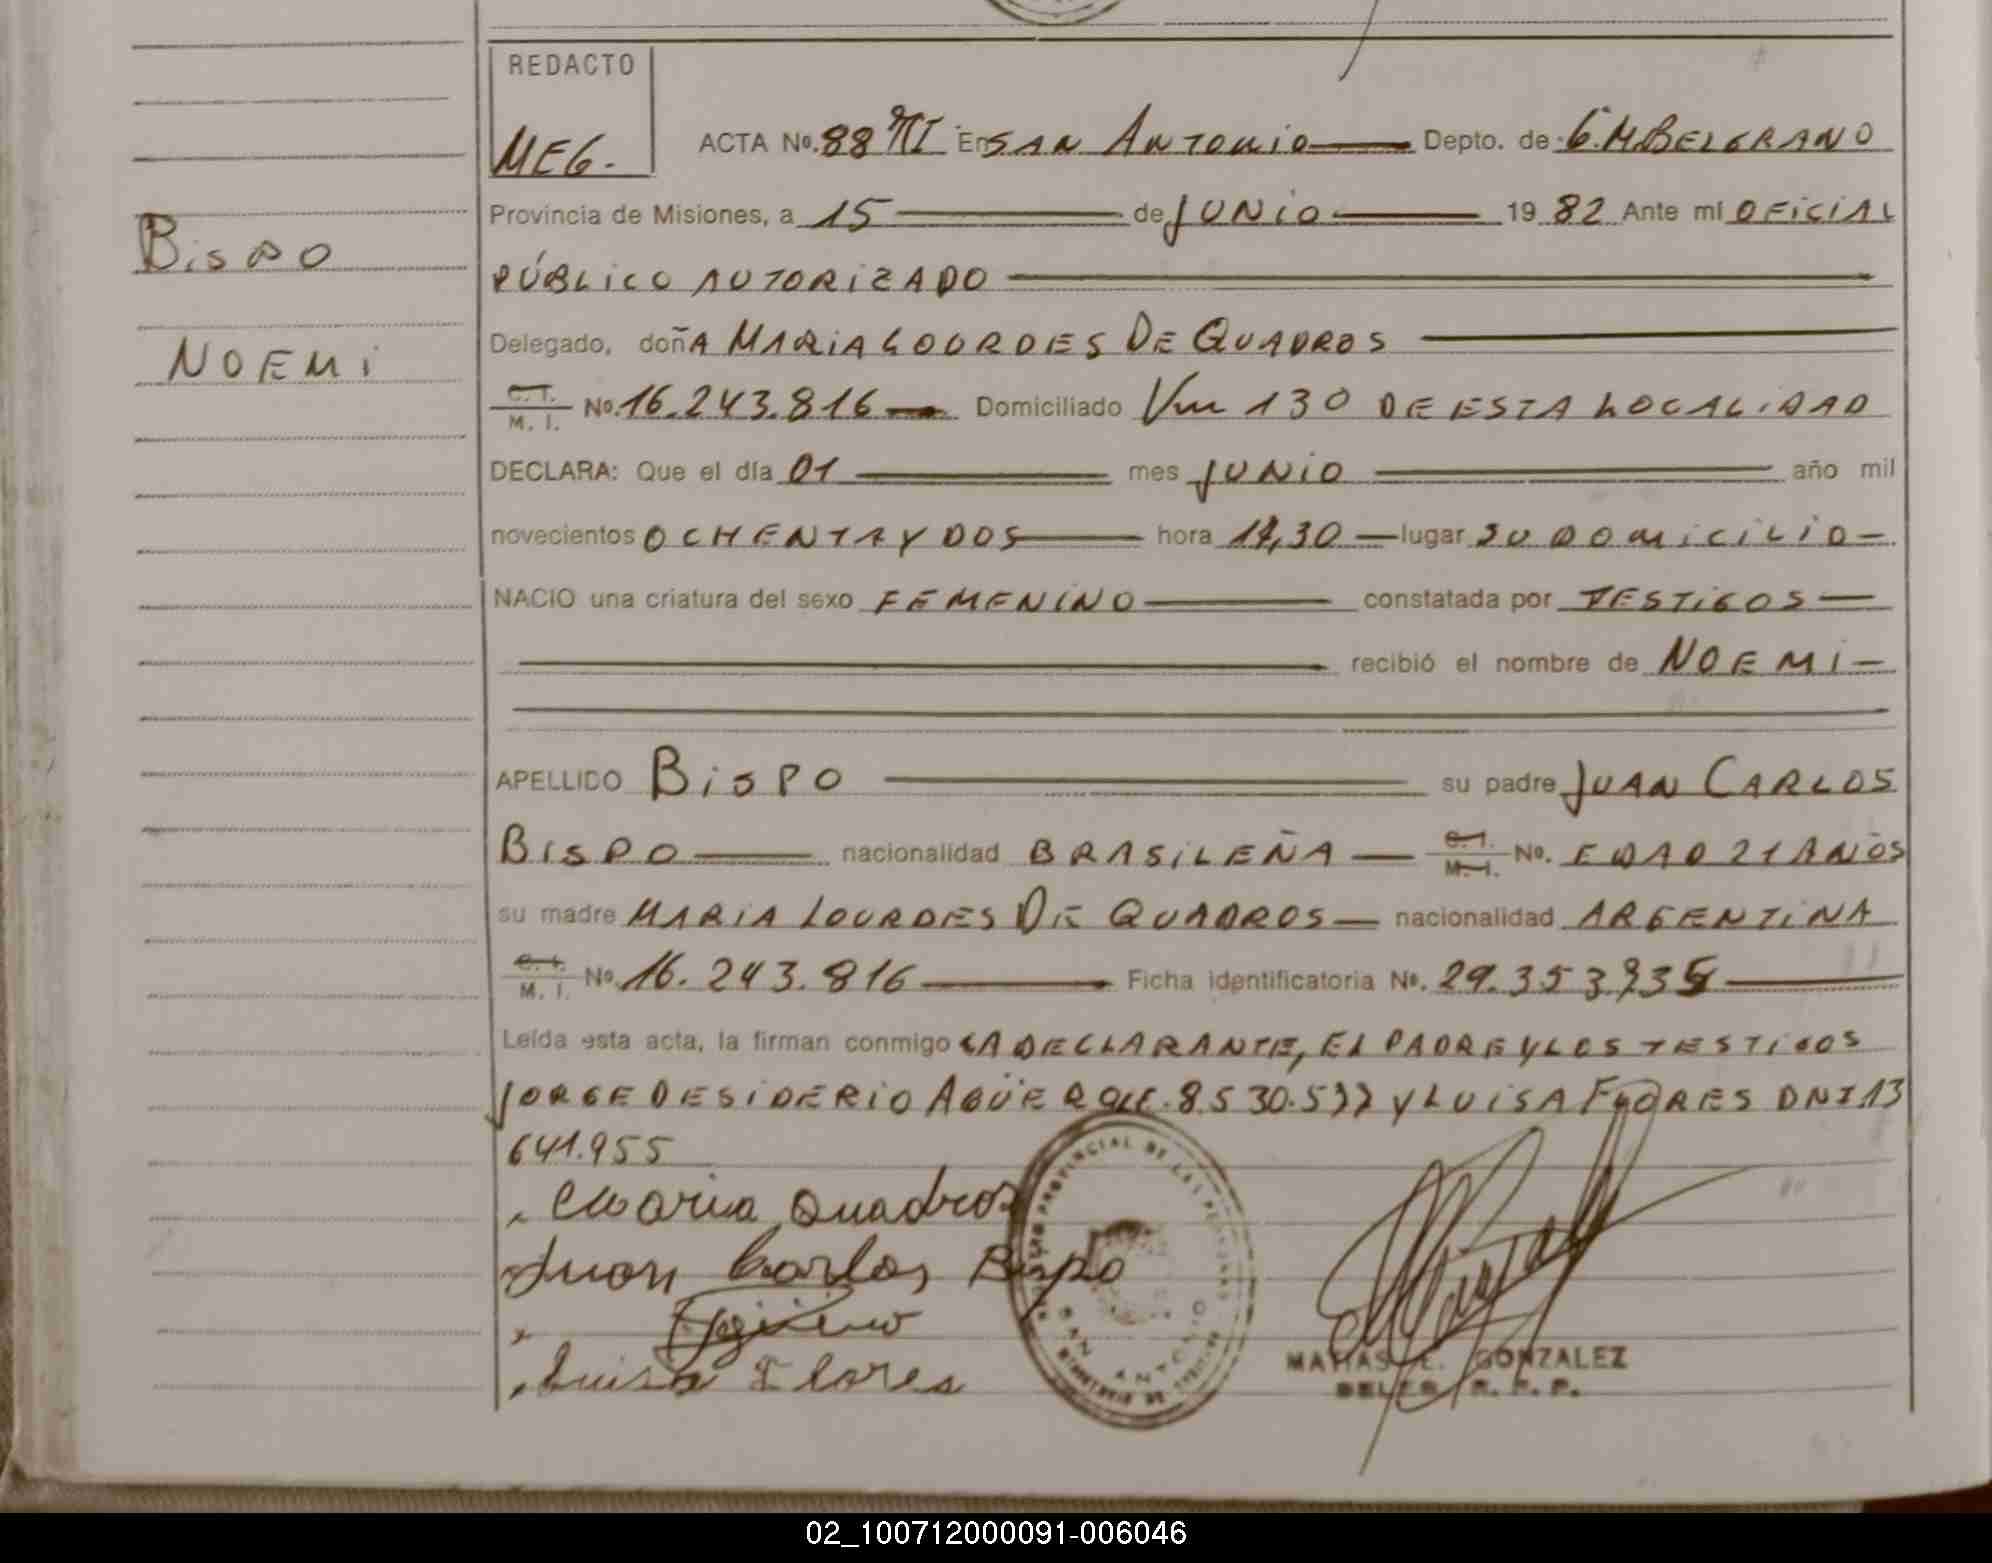 REDACTO
MEG.
ACTA No. 88 TI En SAN ANTONIO Depto. de G. M BELGRANO
Provincia de Misiones, a 15 de JUNIO 19 82 Ante mí OFICIAL
PÚBLICO AUTORIZADO
Bispo
NOEMI
Delegado, doñA MARIA LOURDES DE QUADROS
C. I. M. I. No. 16.243.816 Domiciliado Km 130 DE ESTA LOCALIDAD
DECLARA: Que el día 01 mes JUNIO año mil
novecientos OCHENTA Y DOS hora 14,30 lugar SU DOMICILIO
NACIO una criatura del sexo FEMENINO constatada por TESTIGOS
recibió el nombre de NOEMI
APELLIDO BISPO su padre JUAN CARLOS
BISPO nacionalidad BRASILEÑA C. I. M. I. No. EDAD 21 AÑOS
su madre MARIA LOURDES DE QUADROS nacionalidad ARGENTINA
C. I. M. I. No. 16.243.816 Ficha identificatoria No. 29.353.935
Leída esta acta, la firman conmigo LA DECLARANTE, EL PADRE Y LOS TESTIGOS
JORGE DESIDERIO AGÜERO 8.530.577 Y LUISA FLORES DNI 13
641.955
Maria Quadros
Juan Carlos Bispo
Luisa Flores
PROVINCIAL DE LAS PERSONAS
SAN ANTONIO
MATIAS E. GONZALEZ
DELEG. R. P. P.
02_100712000091-006046